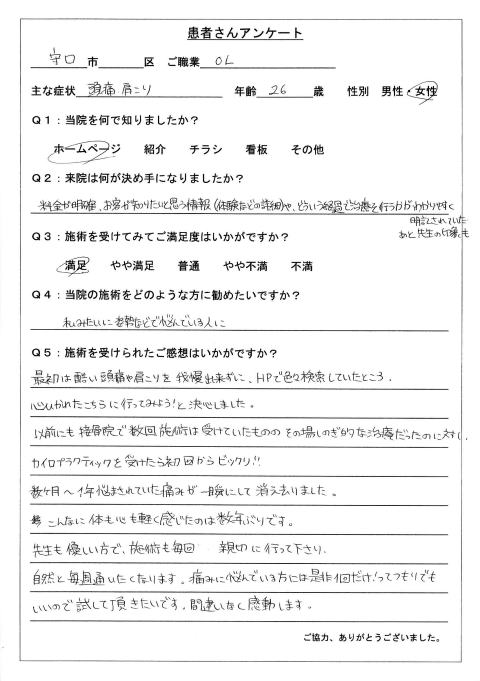 患者さんアンケート
守口 市 区 ご職業 OL
主な症状 頭痛・肩こり 年齢 26 歳 性別 男性・女性
Q1：当院を何で知りましたか？
ホームページ 紹介 チラシ 看板 その他
Q2：来院は何が決め手になりましたか？
料金が明確、お客が知りたいと思う情報(体験などの詳細)や、どういう経過で治療を行うかがわかりやすく
明記されていた
あと先生の印象も
Q3：施術を受けてみてご満足度はいかがですか？
満足 やや満足 普通 やや不満 不満
Q4：当院の施術をどのような方に勧めたいですか？
私みたいに姿勢などで悩んでいる人に
Q5：施術を受けられたご感想はいかがですか？
最初は酷い頭痛や肩こりを我慢出来ずに、HPで色々検索していたところ、
心ひかれたこちらに行ってみよう！と決心しました。
以前にも接骨院で数回施術は受けていたもののその場しのぎ的な治療だったのに対し、
カイロプラクティックを受けたら初回からビックリ!!
数ヶ月～1年悩まされていた痛みが一瞬にして消え去りました。
こんなに体も心も軽く感じたのは数年ぶりです。
先生も優しい方で、施術も毎回 親切に行って下さり、
自然と毎週通いたくなります。痛みに悩んでいる方には是非1回だけ！ってつもりでも
いいので試して頂きたいです。間違いなく感動します。
ご協力、ありがとうございました。